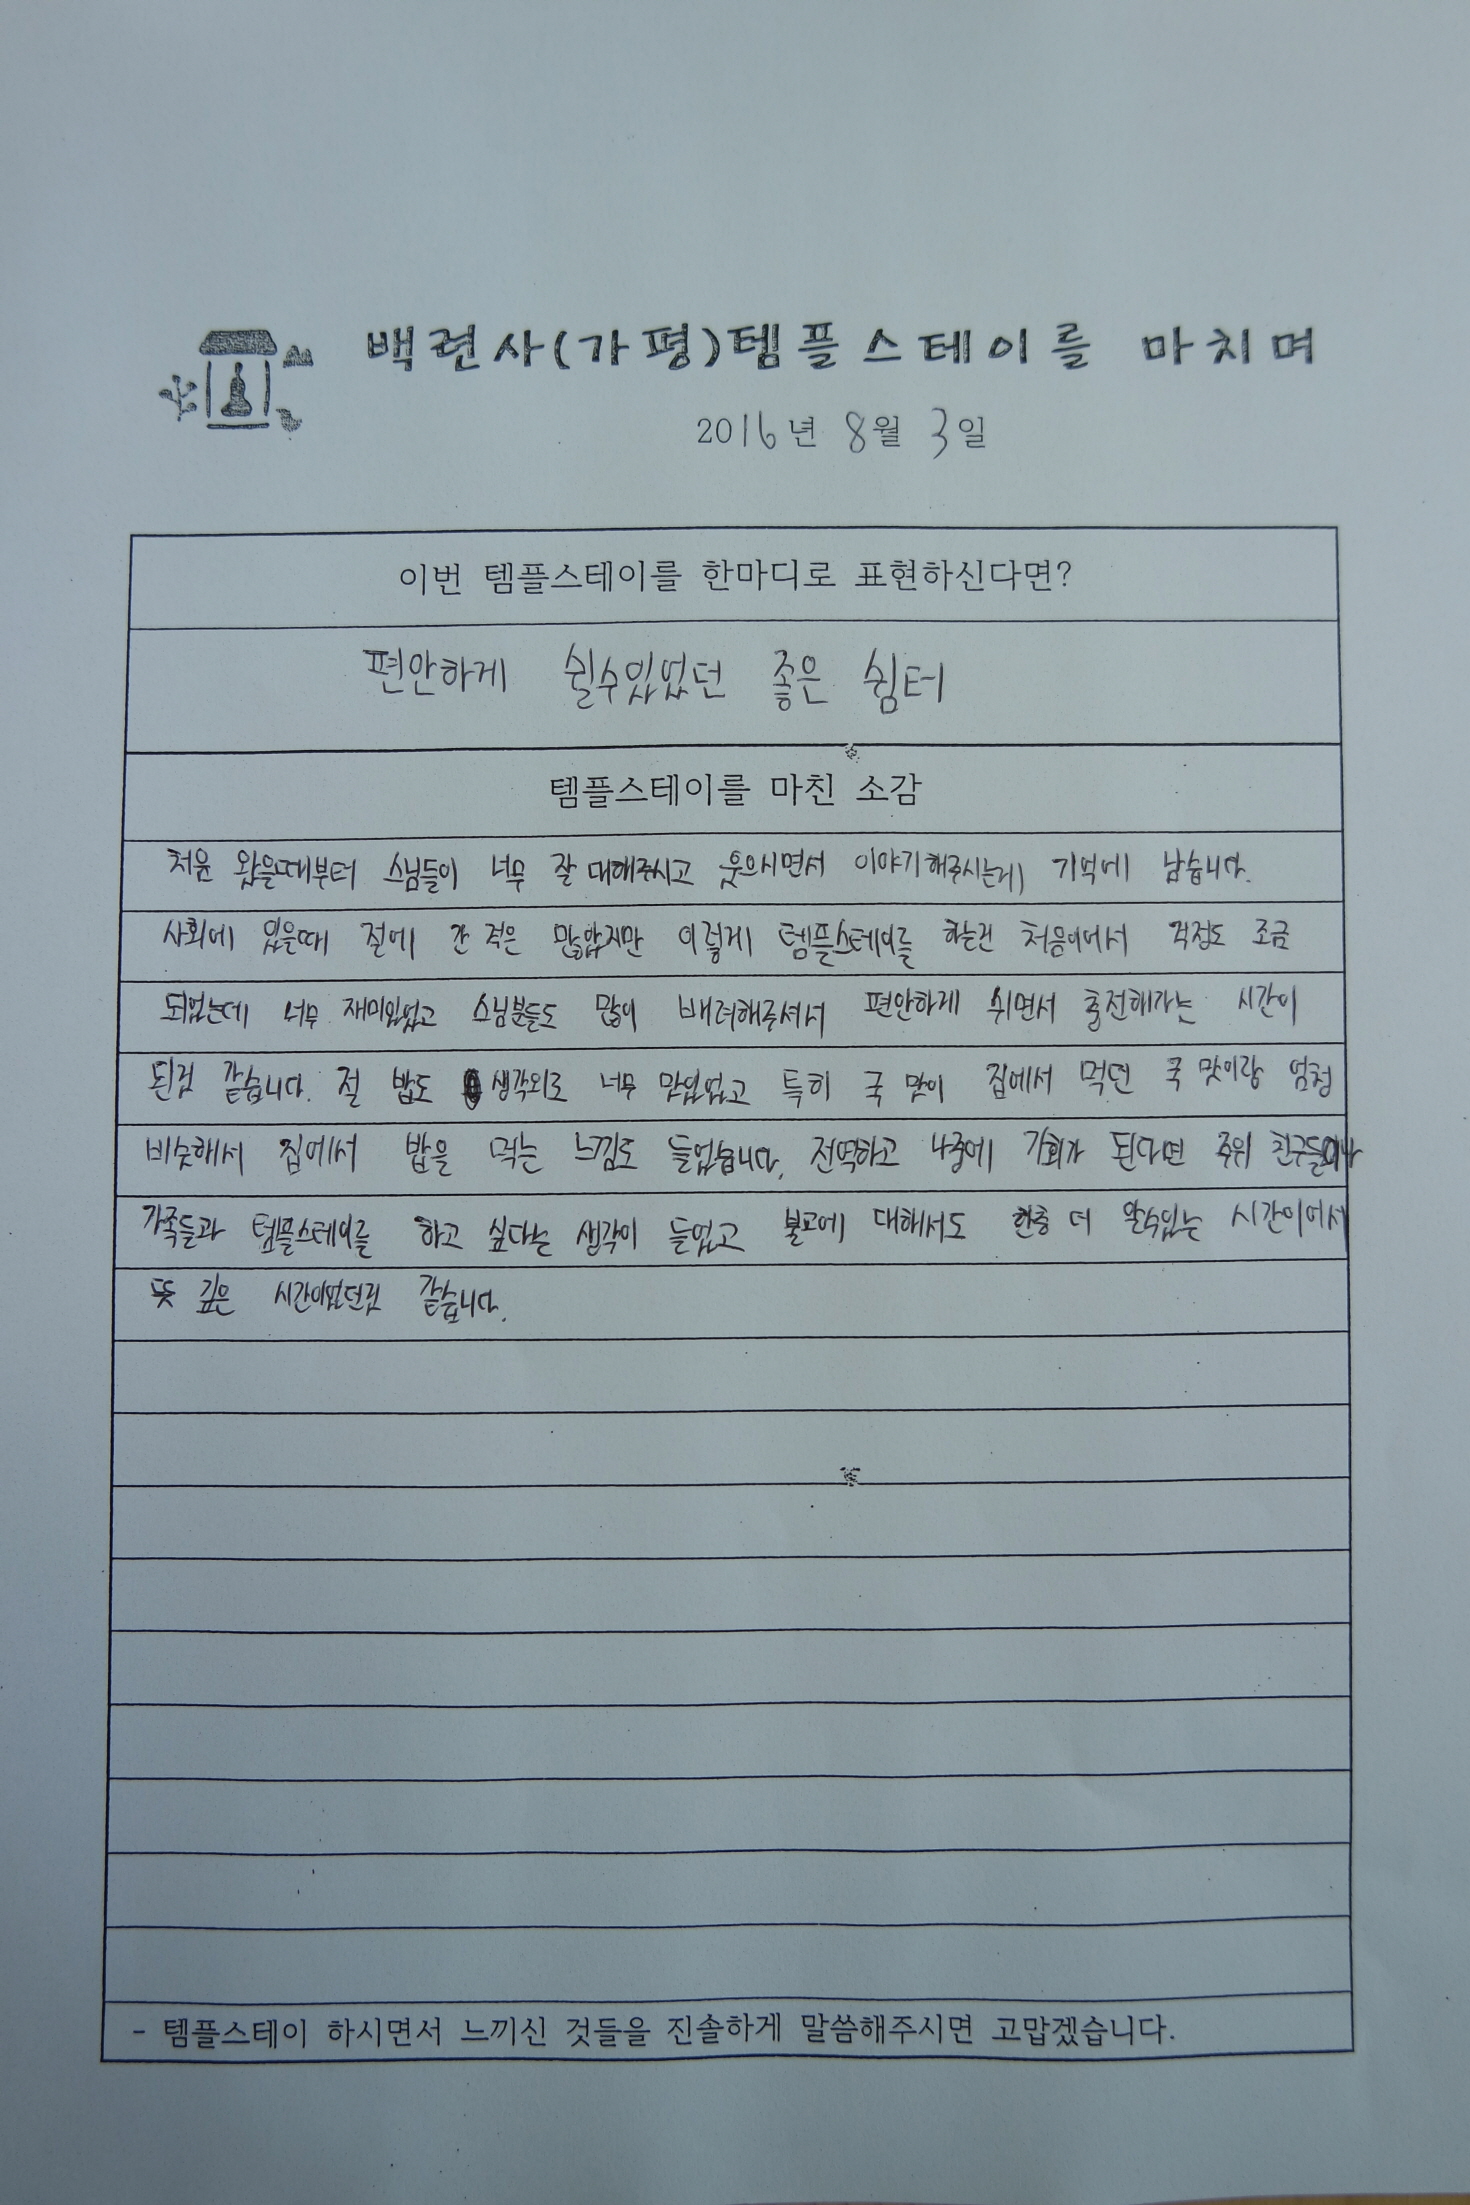 백련사(가평)템플스테이를 마치며
2016년 8월 3일
이번 템플스테이를 한마디로 표현하신다면?
편안하게 쉴수있었던 좋은 쉼터
템플스테이를 마친 소감
처음 왔을때부터 스님들이 너무 잘 대해주시고 웃으시면서 이야기해주시는게 기억에 남습니다.
사회에 있을때 절에 간 적은 많았지만 이렇게 템플스테이를 하는건 처음이여서 걱정도 조금
되었는데 너무 재미있었고 스님분들도 많이 배려해주셔서 편안하게 쉬면서 충전해가는 시간이
된것 같습니다. 절 밥도 생각외로 너무 맛있었고 특히 국 맛이 집에서 먹던 국 맛이랑 엄청
비슷해서 집에서 밥을 먹는 느낌도 들었습니다. 전역하고 나중에 기회가 된다면 주위 친구들이나
가족들과 템플스테이를 하고 싶다는 생각이 들었고 불교에 대해서도 한층 더 알수있는 시간이여서
뜻 깊은 시간이었던것 같습니다.
- 템플스테이 하시면서 느끼신 것들을 진솔하게 말씀해주시면 고맙겠습니다.